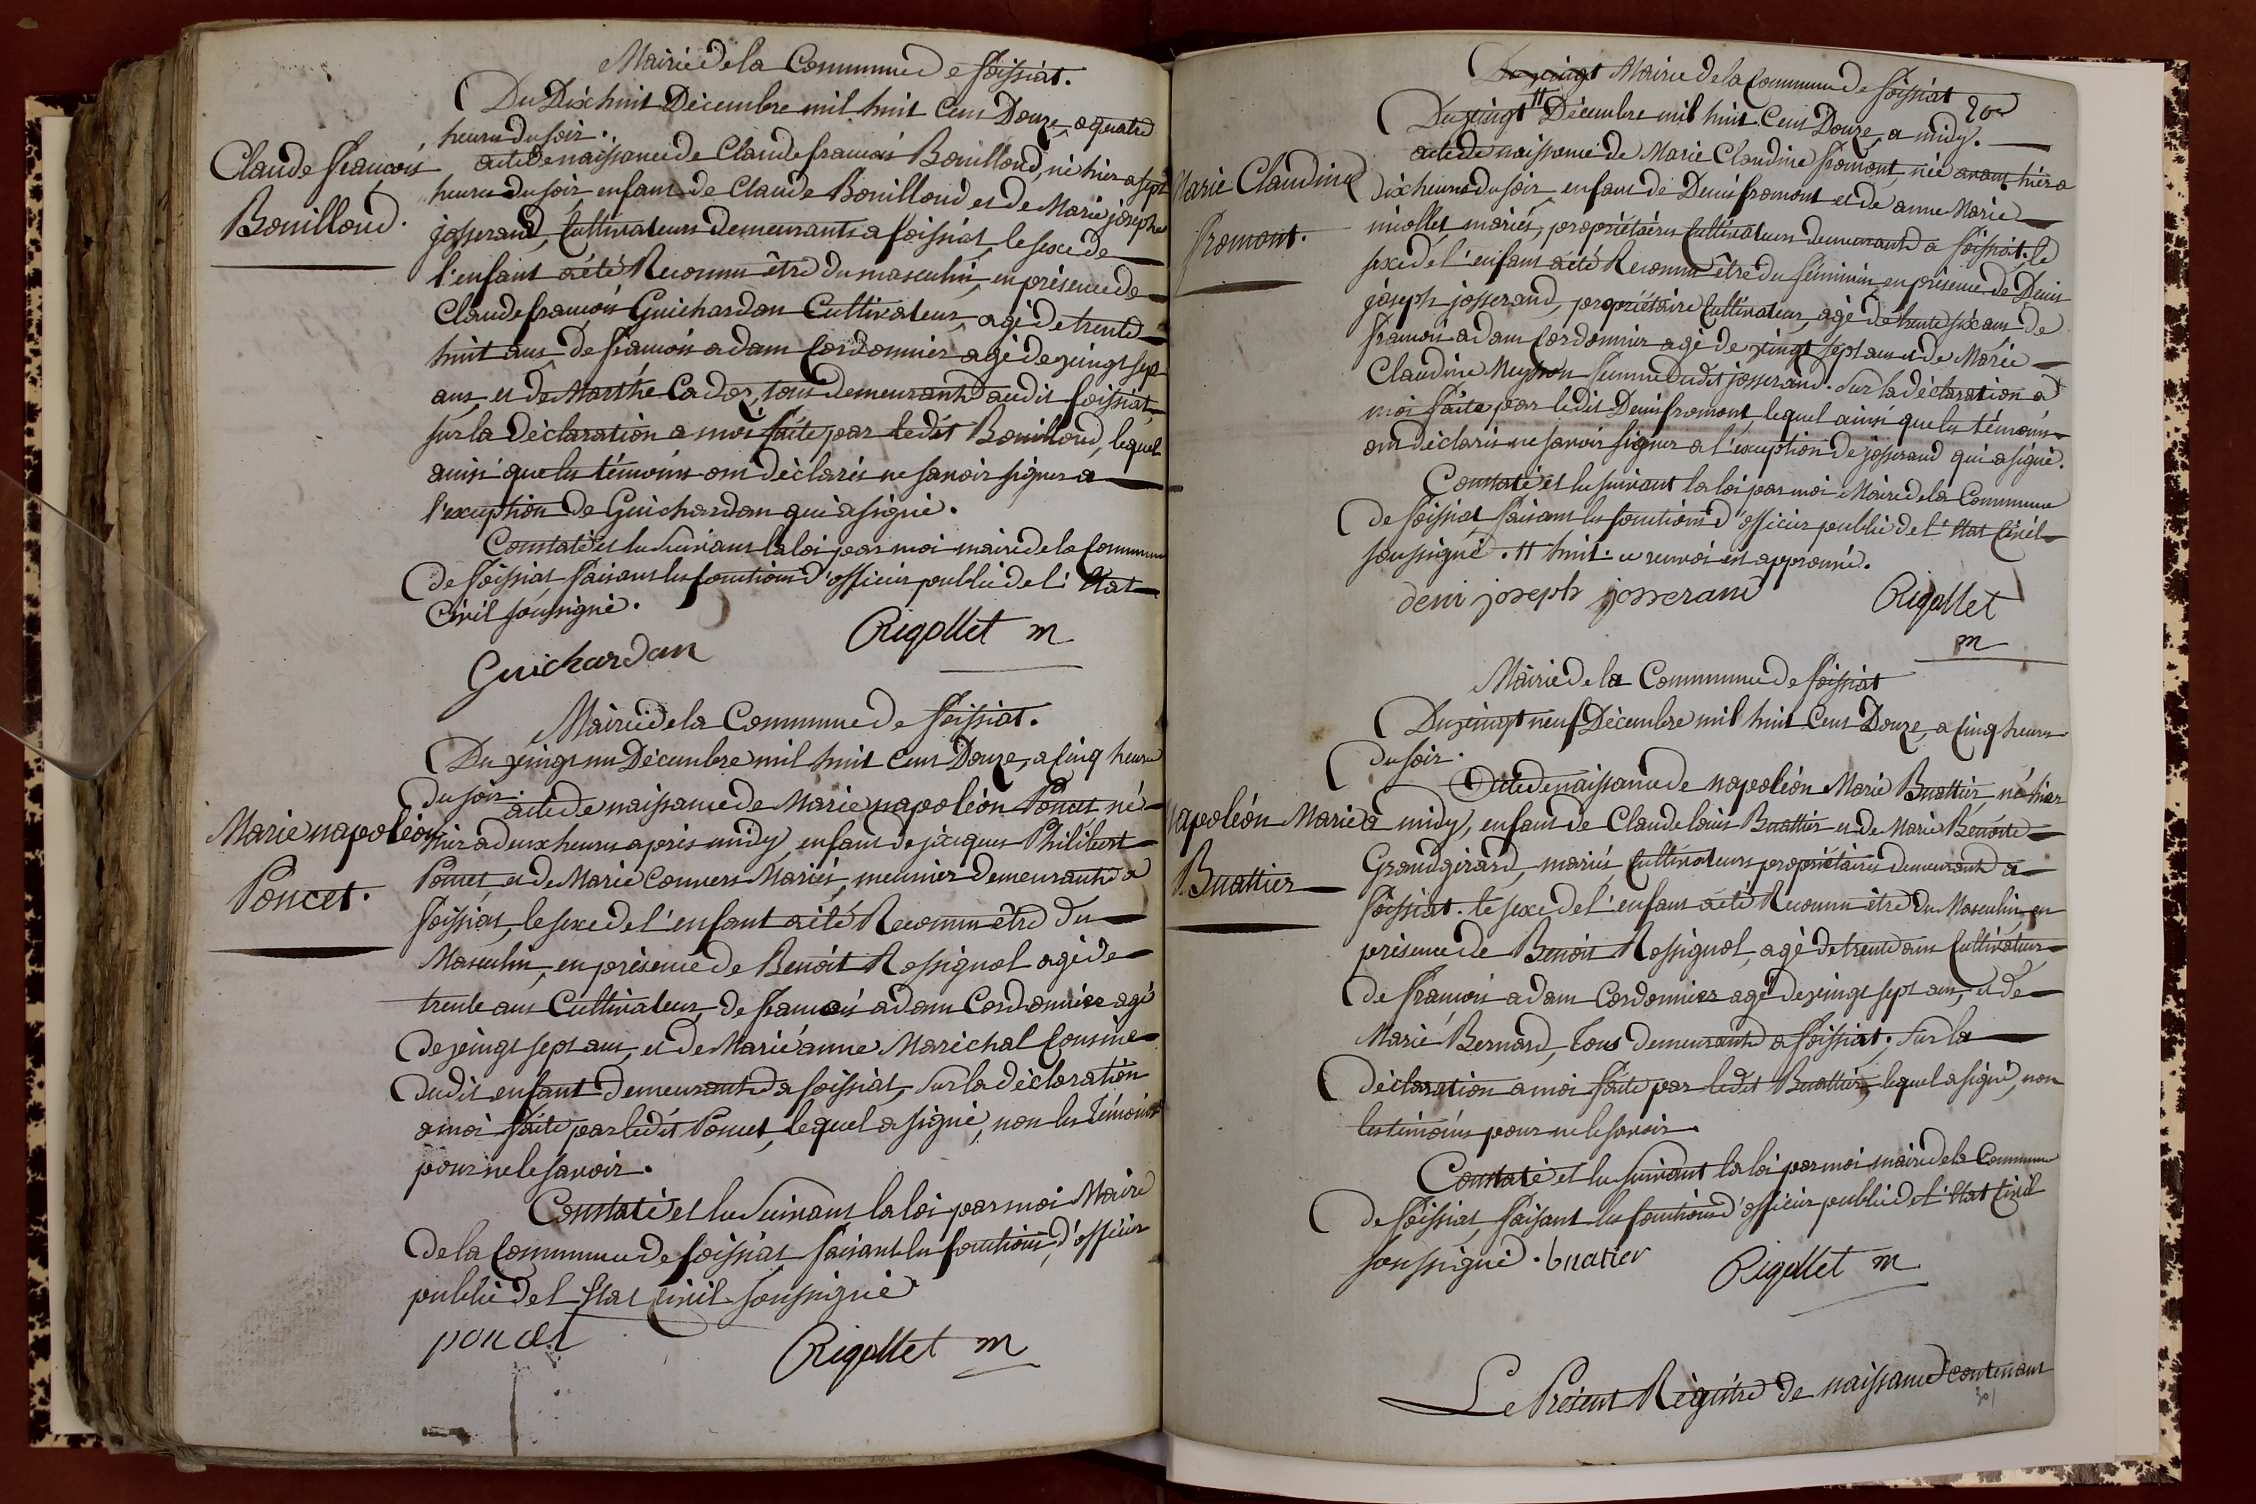 Mairie de la Commune de foissiat.
Du Dix huit Décembre mil huit Cent Douze, a quatre
heures du soir.
Claude francois
Bouilloud.
acte de naissance de Claude francois Bouilloud, né hier a sept
heures du soir, enfant de Claude Bouilloud et de Marie josephe
josserand, Cultivateurs demeurants a foissiat, le sexe de
l'enfant a été Reconnu être du masculin, en présence de
Claude francois Guichardan Cultivateur, agé de trente
huit ans, de francois adam Cordonnier agé de vingt sept
ans, et de Marthe Cador, tous demeurants audit foissiat,
sur la déclaration a moi faite par ledit Bouilloud, lequel
ainsi que les témoins ont déclarés ne savoir signer a
l'exception de Guichardan qui a signé.
Constaté et lu suivant la loi par moi maire de la Commune
de foissiat faisant les fonctions d'officier public de l'Etat
Civil soussigné.
Guichardan
Rigollet m
Mairie de la Commune de foissiat.
Du vingt un Décembre mil huit Cent Douze, a Cinq heures
du soir.
Marie napoléon
Poncet.
acte de naissance de Marie napoléon Poncet né
hier a deux heures après midy, enfant de jacques Philibert
Poncet et de Marie Convers Mariés, meunier demeurants a
foissiat, le sexe de l'enfant a été Reconnu être du
Masculin, en présence de Benoit Rossignol agé de
trente ans Cultivateur, de francois adam Cordonnier agé
de vingt sept ans, et de Marie anne Maréchal Cousine
dudit enfant demeurants a foissiat, sur la déclaration
a moi faite par ledit Poncet, lequel a signé, non les Témoins
pour ne le savoir.
Constaté et lu suivant la loi par moi Maire
de la Commune de foissiat faisant les fonctions d'officier
public de l'Etat Civil soussigné
poncet
Rigollet m
Du vingt Mairie de la Commune de foissiat
200
Du vingt # Décembre mil huit Cent Douze, a midy.
Marie Claudine
fromont.
acte de naissance de Marie Claudine fromont, née avant hier a
dix heures du soir, enfant de Denis fromont et de anne Marie
niollet, mariés, propriétaires Cultivateurs demeurants a foissiat. le
sexe de l'enfant a été Reconnu être du féminin, en présence de Denis
joseph josserand, propriétaire Cultivateur, agé de trente six ans de
francois adam Cordonnier agé de vingt sept ans et de Marie
Claudine Neyron femme dudit josserand. Sur la déclaration a
moi faite par ledit Denis fromont, lequel ainsi que les témoins
ont déclarés ne savoir signer a l'exception de josserand qui a signé.
Constaté et lu suivant la loi par moi Maire de la Commune
de foissiat faisant les fonctions d'officier public de l'Etat Civil
soussigné. # huit. ce renvoi est approuvé.
deni joseph josserand
Rigollet
m
Mairie de la Commune de foissiat
Du vingt neuf Décembre mil huit Cent Douze, a Cinq heures
du soir.
Napoléon Marie
Buattier
Acte de naissance de napoléon Marie Buattier, né hier
a midy, enfant de Claude louis Buattier et de Marie Benoite
Grandgirard, mariés, Cultivateurs propriétaires demeurants a
foissiat. le sexe de l'enfant a été Reconnu être du Masculin, en
présence de Benoit Rossignol, agé de trente ans Cultivateur,
de francois adam Cordonnier agé de vingt sept ans, et de
Marie Bernard, tous demeurants a foissiat, sur la
déclaration a moi faite par ledit Buattier, lequel a signé, non
les témoins pour ne le savoir.
Constaté et lu suivant la loi par moi maire de la Commune
de foissiat, faisant les fonctions d'officier public de l'Etat Civil
soussigné. buatier
Rigollet m
Le Présent Régistre de naissance contenant
201